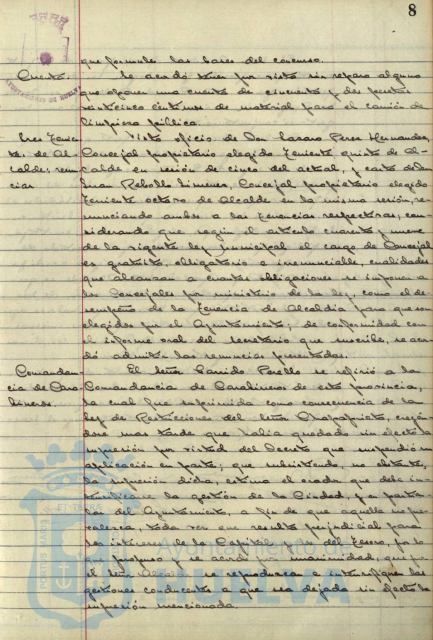 8
que formule las bases del concurso.
Cuenta. Se acordó tener por visto sin reparo alguno
que oponer una cuenta de cincuenta y dos pesetas
veinticinco céntimos de material para el camión de
limpieza pública.
Tenien- Visto oficio de Don Lázaro Perez Hernandez,
te de Al- Concejal propietario elegido Teniente quinto de Al-
caldes: renun- calde en sesión de cinco del actual, y carta de Don
cias Juan Rebollo Jimenez, Concejal propietario elegido
Teniente octavo de Alcalde en la misma sesión, re-
nunciando ambos a las Tenencias respectivas; con-
siderando que según el artículo cuarenta y nueve
de la vigente ley municipal el cargo de Concejal
es gratuito, obligatorio e irrenunciable, cualidades
que alcanzan a cuantas obligaciones se imponen a
los Concejales por ministerio de la ley, como el de-
sempeño de la Tenencia de Alcaldía para que son
elegidos por el Ayuntamiento; de conformidad con
el informe oral del Secretario que suscribe, se acor-
dó admitir las renuncias presentadas.
Comandan- El Señor Garrido Perello se refirió a la
cia de Cara- Comandancia de Carabineros de esta provincia,
bineros. la cual fue suprimida como consecuencia de la
ley de Restricciones del Señor Chapaprieta, creyén-
dose mas tarde que había quedado sin efecto la
supresión por virtud del Decreto que suspendió su
aplicación en parte; que subsistiendo, no obstante,
la supresión dicha, estima el orador que debe in-
tensificarse la gestión de la Ciudad, y en particu-
lar del Ayuntamiento, a fin de que aquella no pre-
valezca, toda vez que resulta perjudicial para
los intereses de la Capital y los del Tesoro, por lo
que propuso y se acordó por unanimidad, que por
el Señor Alcalde se reproduzcan e intensifiquen las
gestiones conducentes a que sea dejada sin efecto la
supresión mencionada.
Ayuntamiento
HUELVA